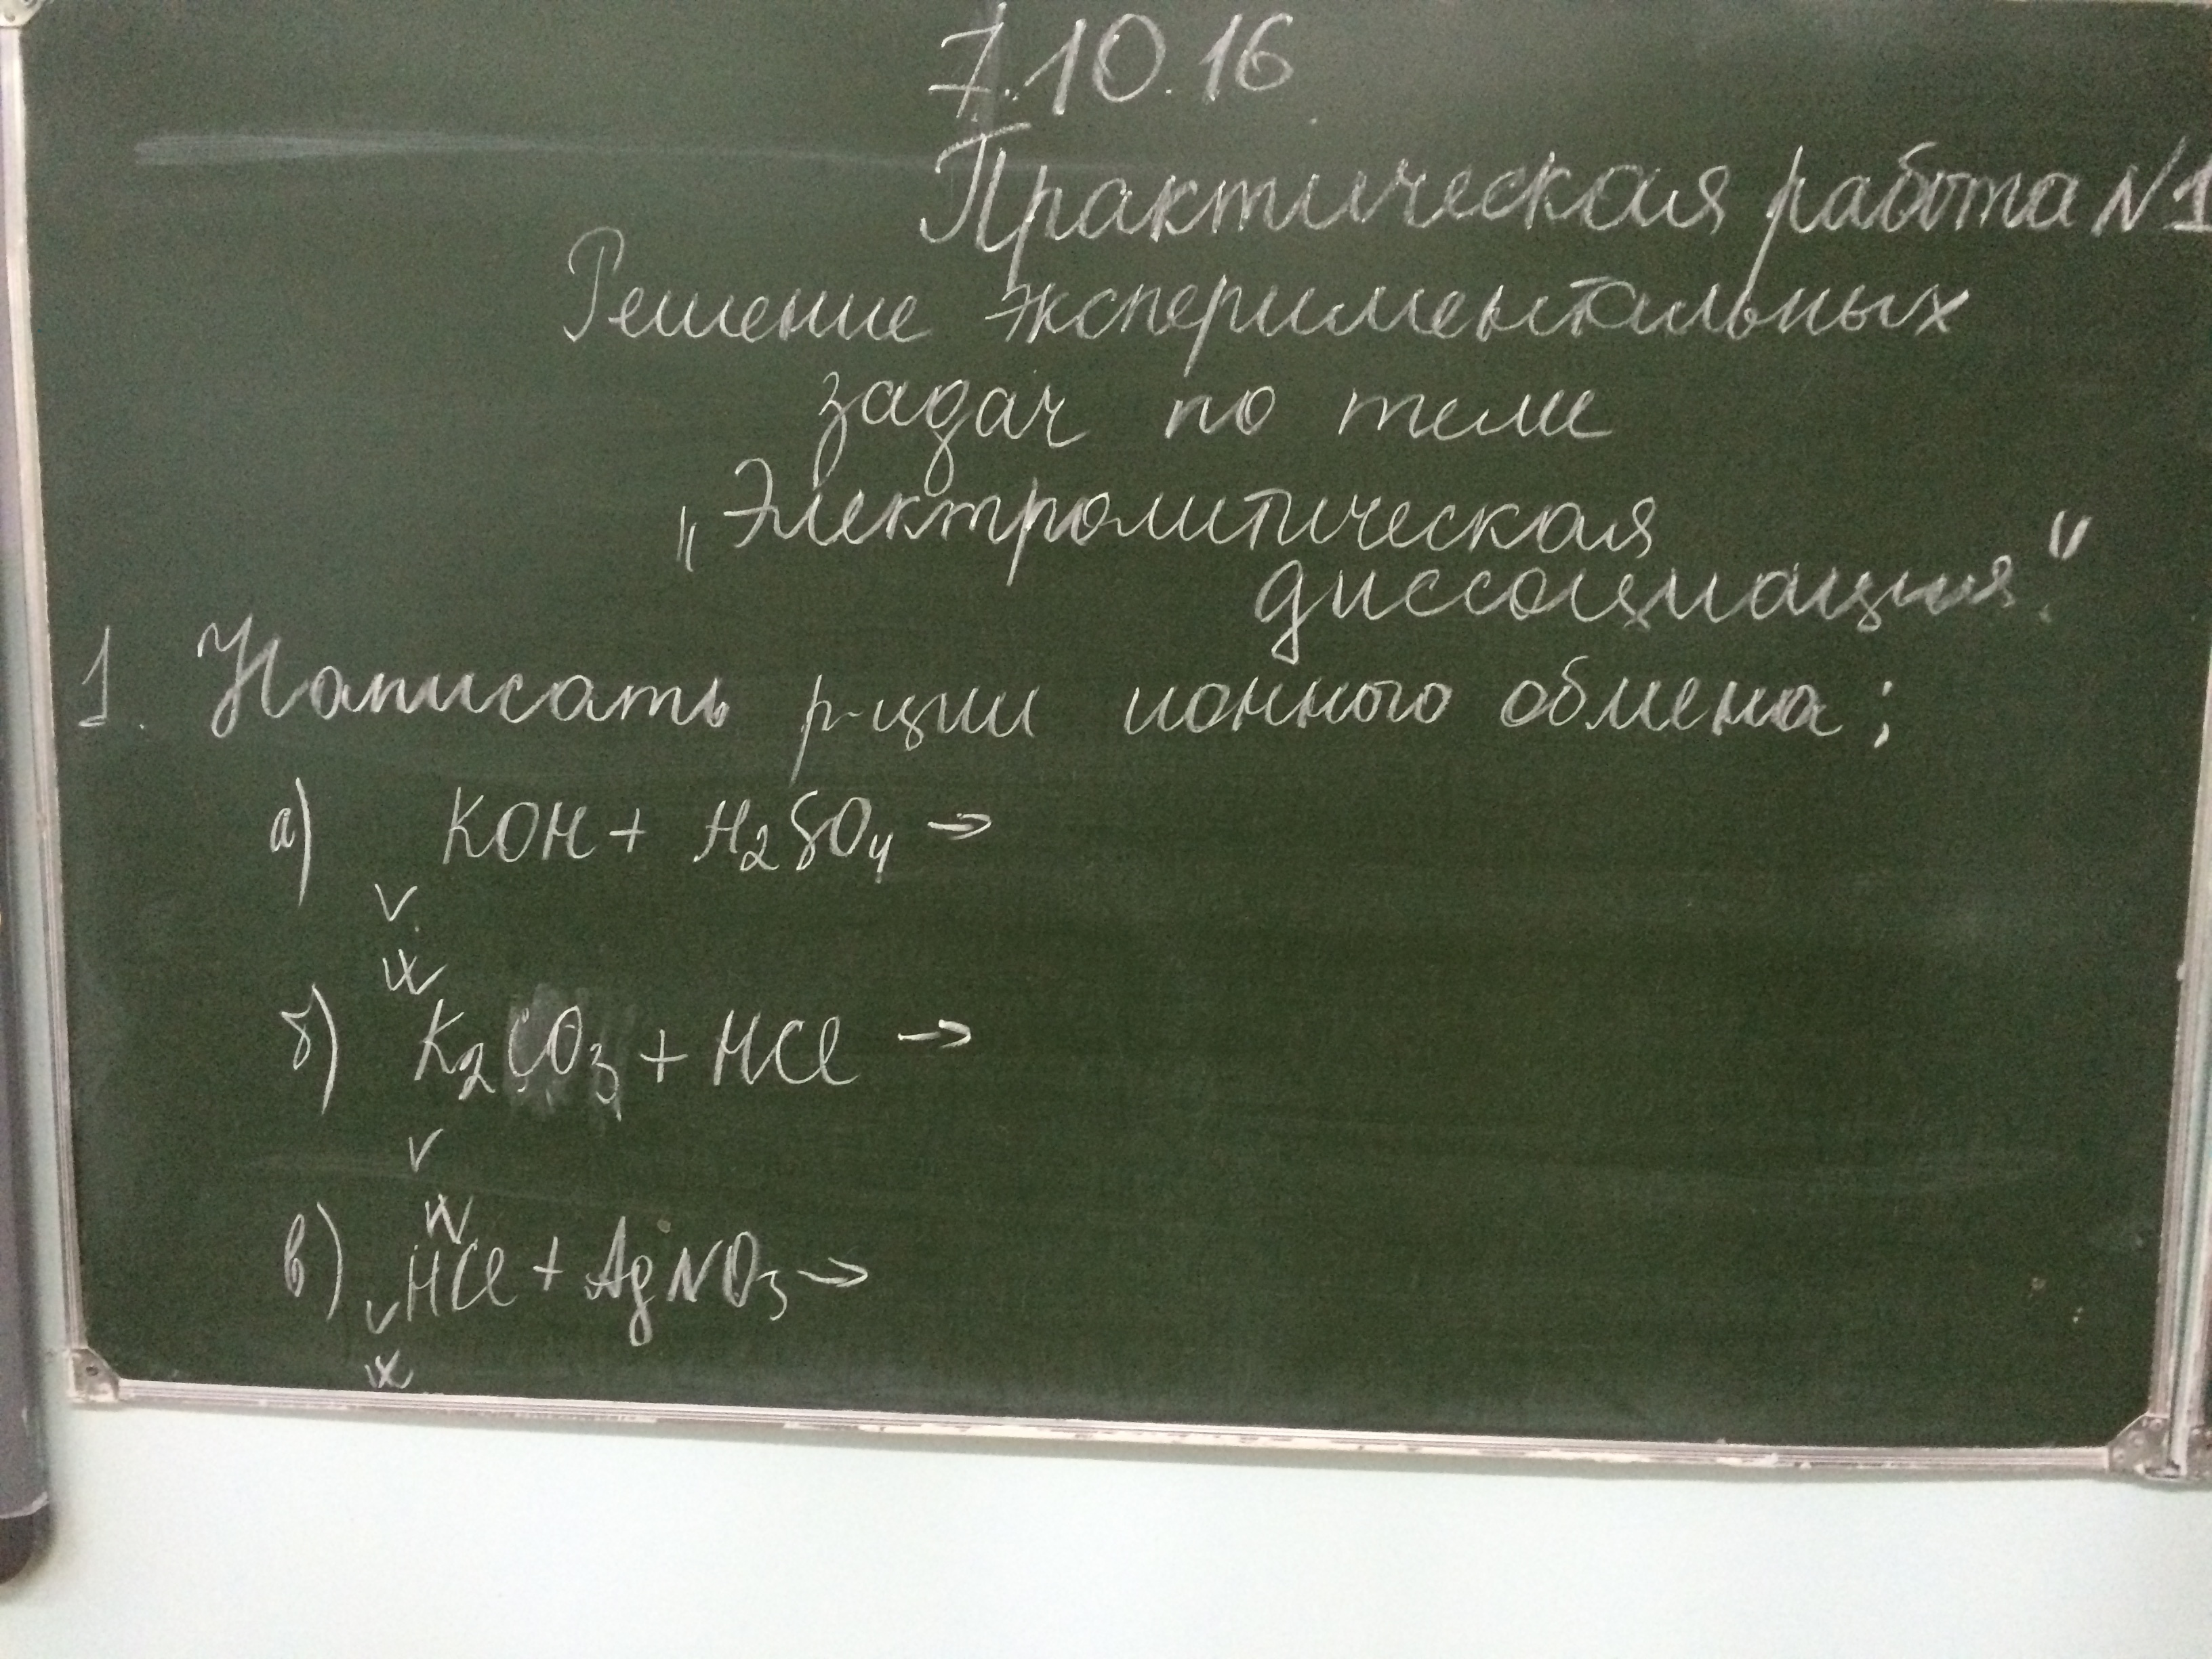 7.10.16
Практическая работа №1
Решение экспериментальных
задач по теме
„Электролитическая
диссоциация."
1. Написать р-ции ионного обмена:
а) KOH + H₂SO₄ →
v
б) K₂CO₃ + HCl →
v
в) HCl + AgNO₃ →
v